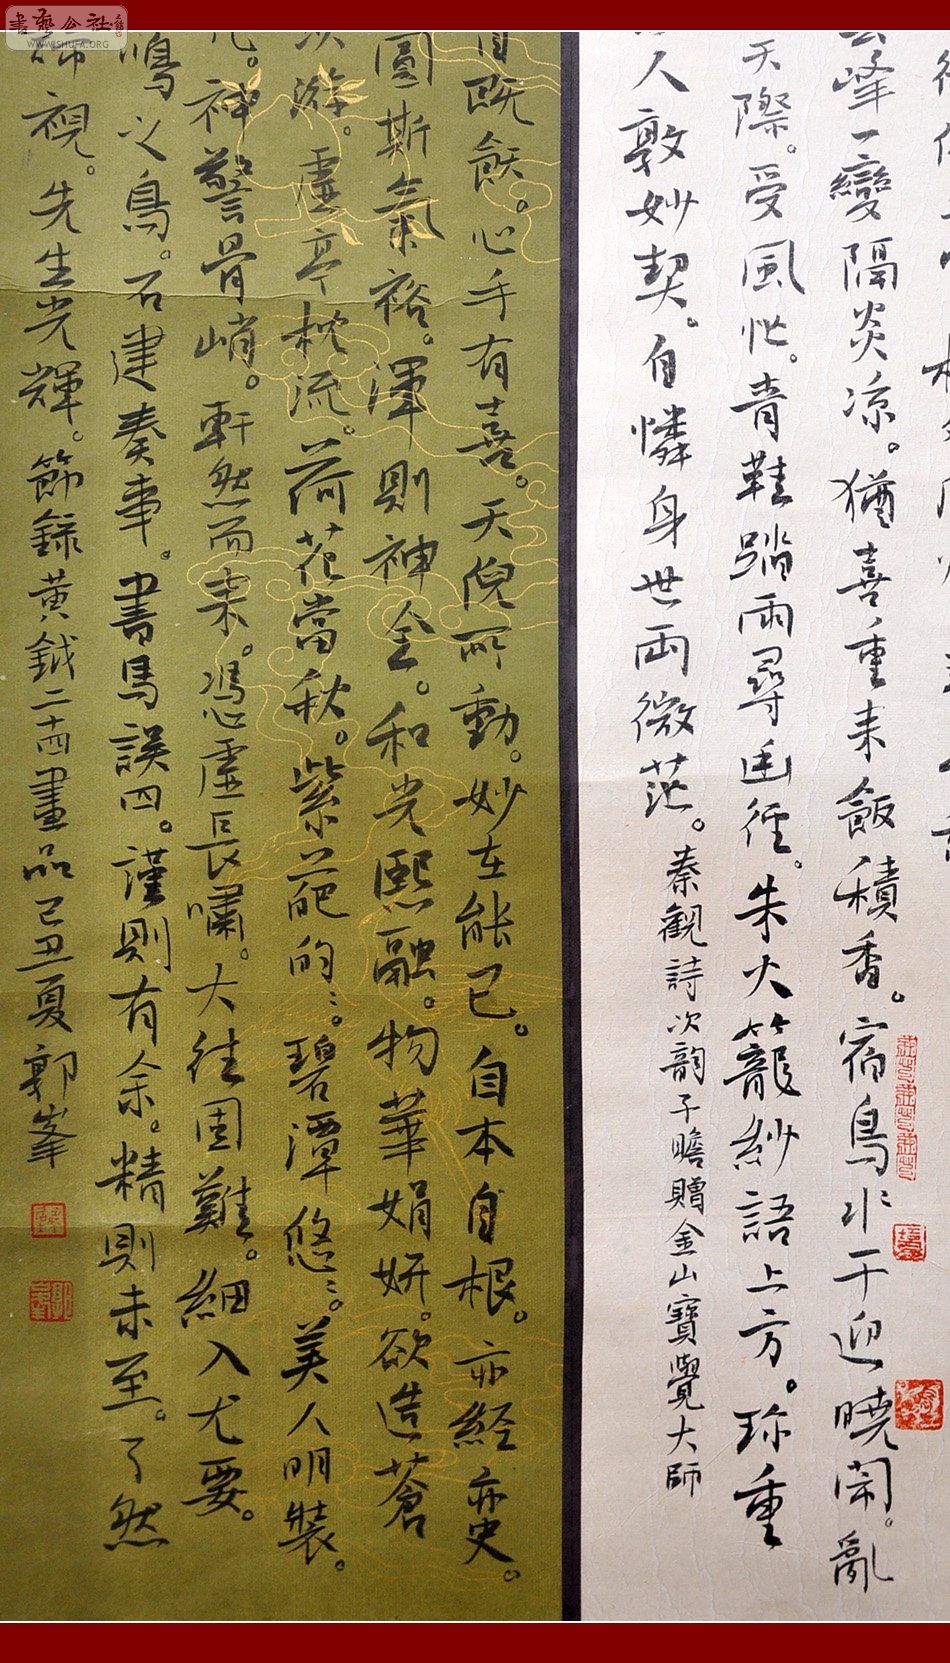 峰一變隔炎凉。猶喜重来飯積香。宿鳥水干迎曉鬧。亂
天際。受風忙。青鞋踏雨尋幽徑。朱火籠紗語上方。珍重
人敦妙契。自憐身世兩微茫。秦觀詩次韵子瞻贈金山寶覺大師
目既飫。心手有喜。天倪所動。妙在能已。自本自根。亦經亦史。
圓斯氣裕。渾則神全。和光熙融。物華娟妍。欲造蒼
游。虛亭枕流。荷花當秋。紫葩的〻。碧潭悠〻。美人明裝。
神警骨峭。軒然而来。憑虛長嘯。大往固難。細入尤要。
鳴之鳥。石建奏事。書馬誤四。謹則有余。精則未至。了然
諦視。先生光輝。節錄黄鉞二十四畫品己丑夏郭峯
書藝公社
WWW.SHUFA.ORG